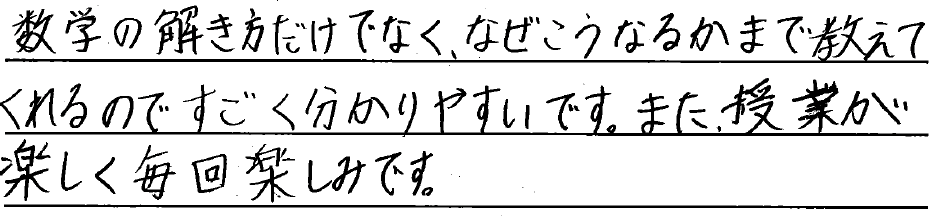 数学の解き方だけでなく、なぜこうなるかまで教えて
くれるのですごく分かりやすいです。また、授業が
楽しく毎回楽しみです。